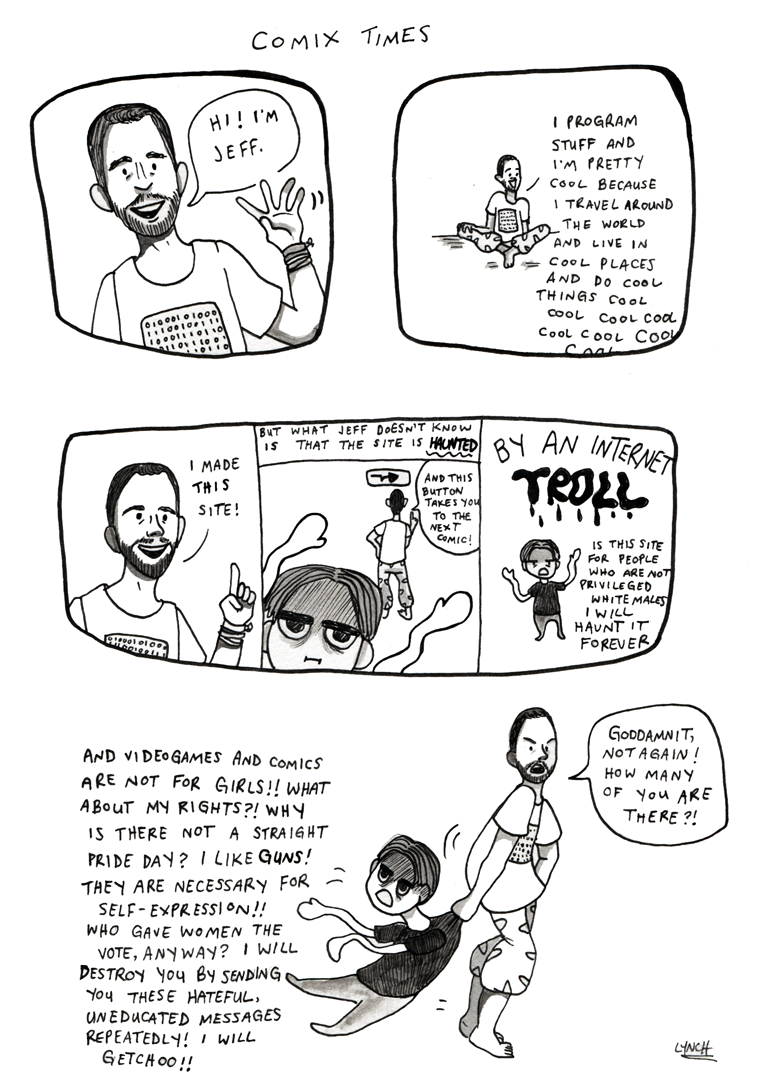 COMIX TIMES
HI! I'M
JEFF.
01001 01001
I PROGRAM
STUFF AND
I'M PRETTY
COOL BECAUSE
I TRAVEL AROUND
THE WORLD
AND LIVE IN
COOL PLACES
AND DO COOL
THINGS COOL
COOL COOL COOL
COOL COOL COOL
COOL
I MADE
THIS
SITE!
BUT WHAT JEFF DOESN'T KNOW
IS THAT THE SITE IS HAUNTED
AND THIS
BUTTON
TAKES YOU
TO THE
NEXT
COMIC!
BY AN INTERNET
TROLL
IS THIS SITE
FOR PEOPLE
WHO ARE NOT
PRIVILEGED
WHITE MALES
I WILL
HAUNT IT
FOREVER
AND VIDEOGAMES AND COMICS
ARE NOT FOR GIRLS!! WHAT
ABOUT MY RIGHTS?! WHY
IS THERE NOT A STRAIGHT
PRIDE DAY? I LIKE GUNS!
THEY ARE NECESSARY FOR
SELF-EXPRESSION!!
WHO GAVE WOMEN THE
VOTE, ANYWAY? I WILL
DESTROY YOU BY SENDING
YOU THESE HATEFUL,
UNEDUCATED MESSAGES
REPEATEDLY! I WILL
GETCHOO!!
GODDAMNIT,
NOT AGAIN!
HOW MANY
OF YOU ARE
THERE?!
LYNCH